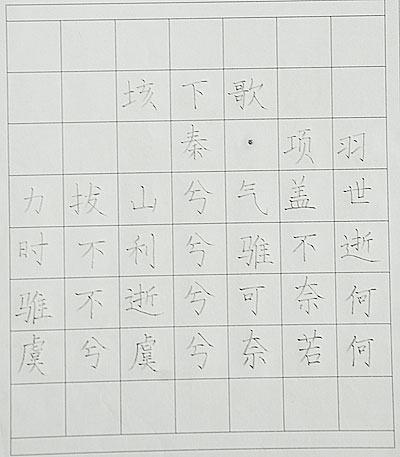 垓下歌
秦·项羽
力拔山兮气盖世
时不利兮骓不逝
骓不逝兮可奈何
虞兮虞兮奈若何